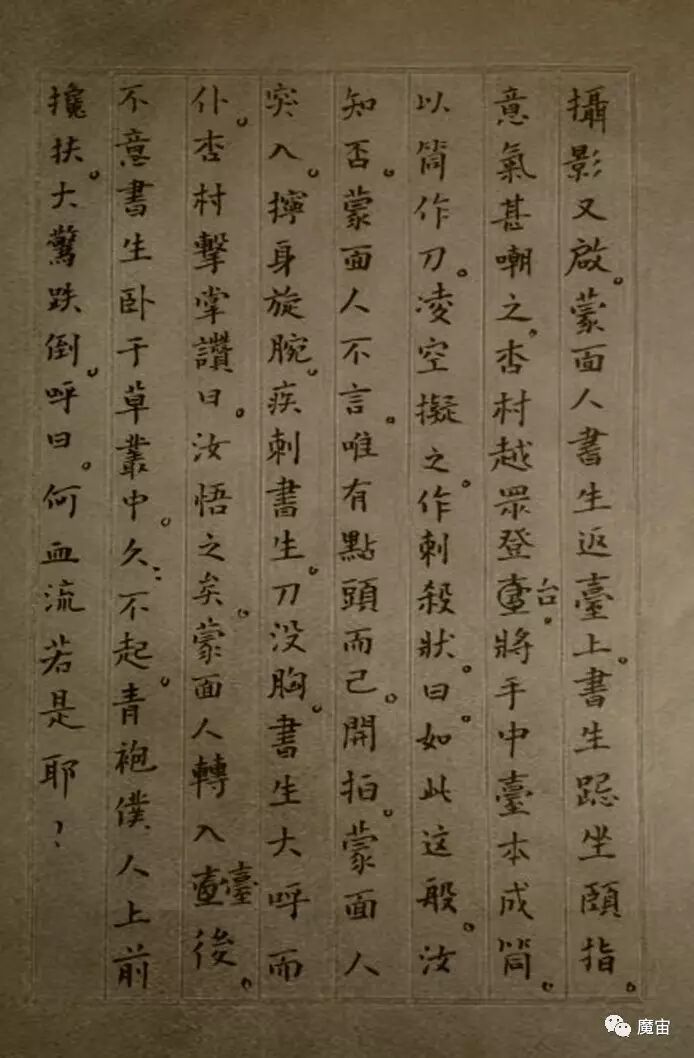 攝影又啟。蒙面人書生返臺上。書生跽坐頤指。
意氣甚嘲之。杏村越眾登台。將手中臺本成筒。
以筒作刀。凌空擬之。作刺殺狀。曰。如此这般。汝
知否。蒙面人不言。唯有點頭而已。開拍。蒙面人
突入。擰身旋腕。疾刺書生。刀没胸。書生大呼而
仆。杏村擊掌讚曰。汝悟之矣。蒙面人轉入臺後。
不意書生卧于草叢中。久〻不起。青袍僕人上前
攙扶。大驚跌倒。呼曰。何血流若是耶？
魔宙